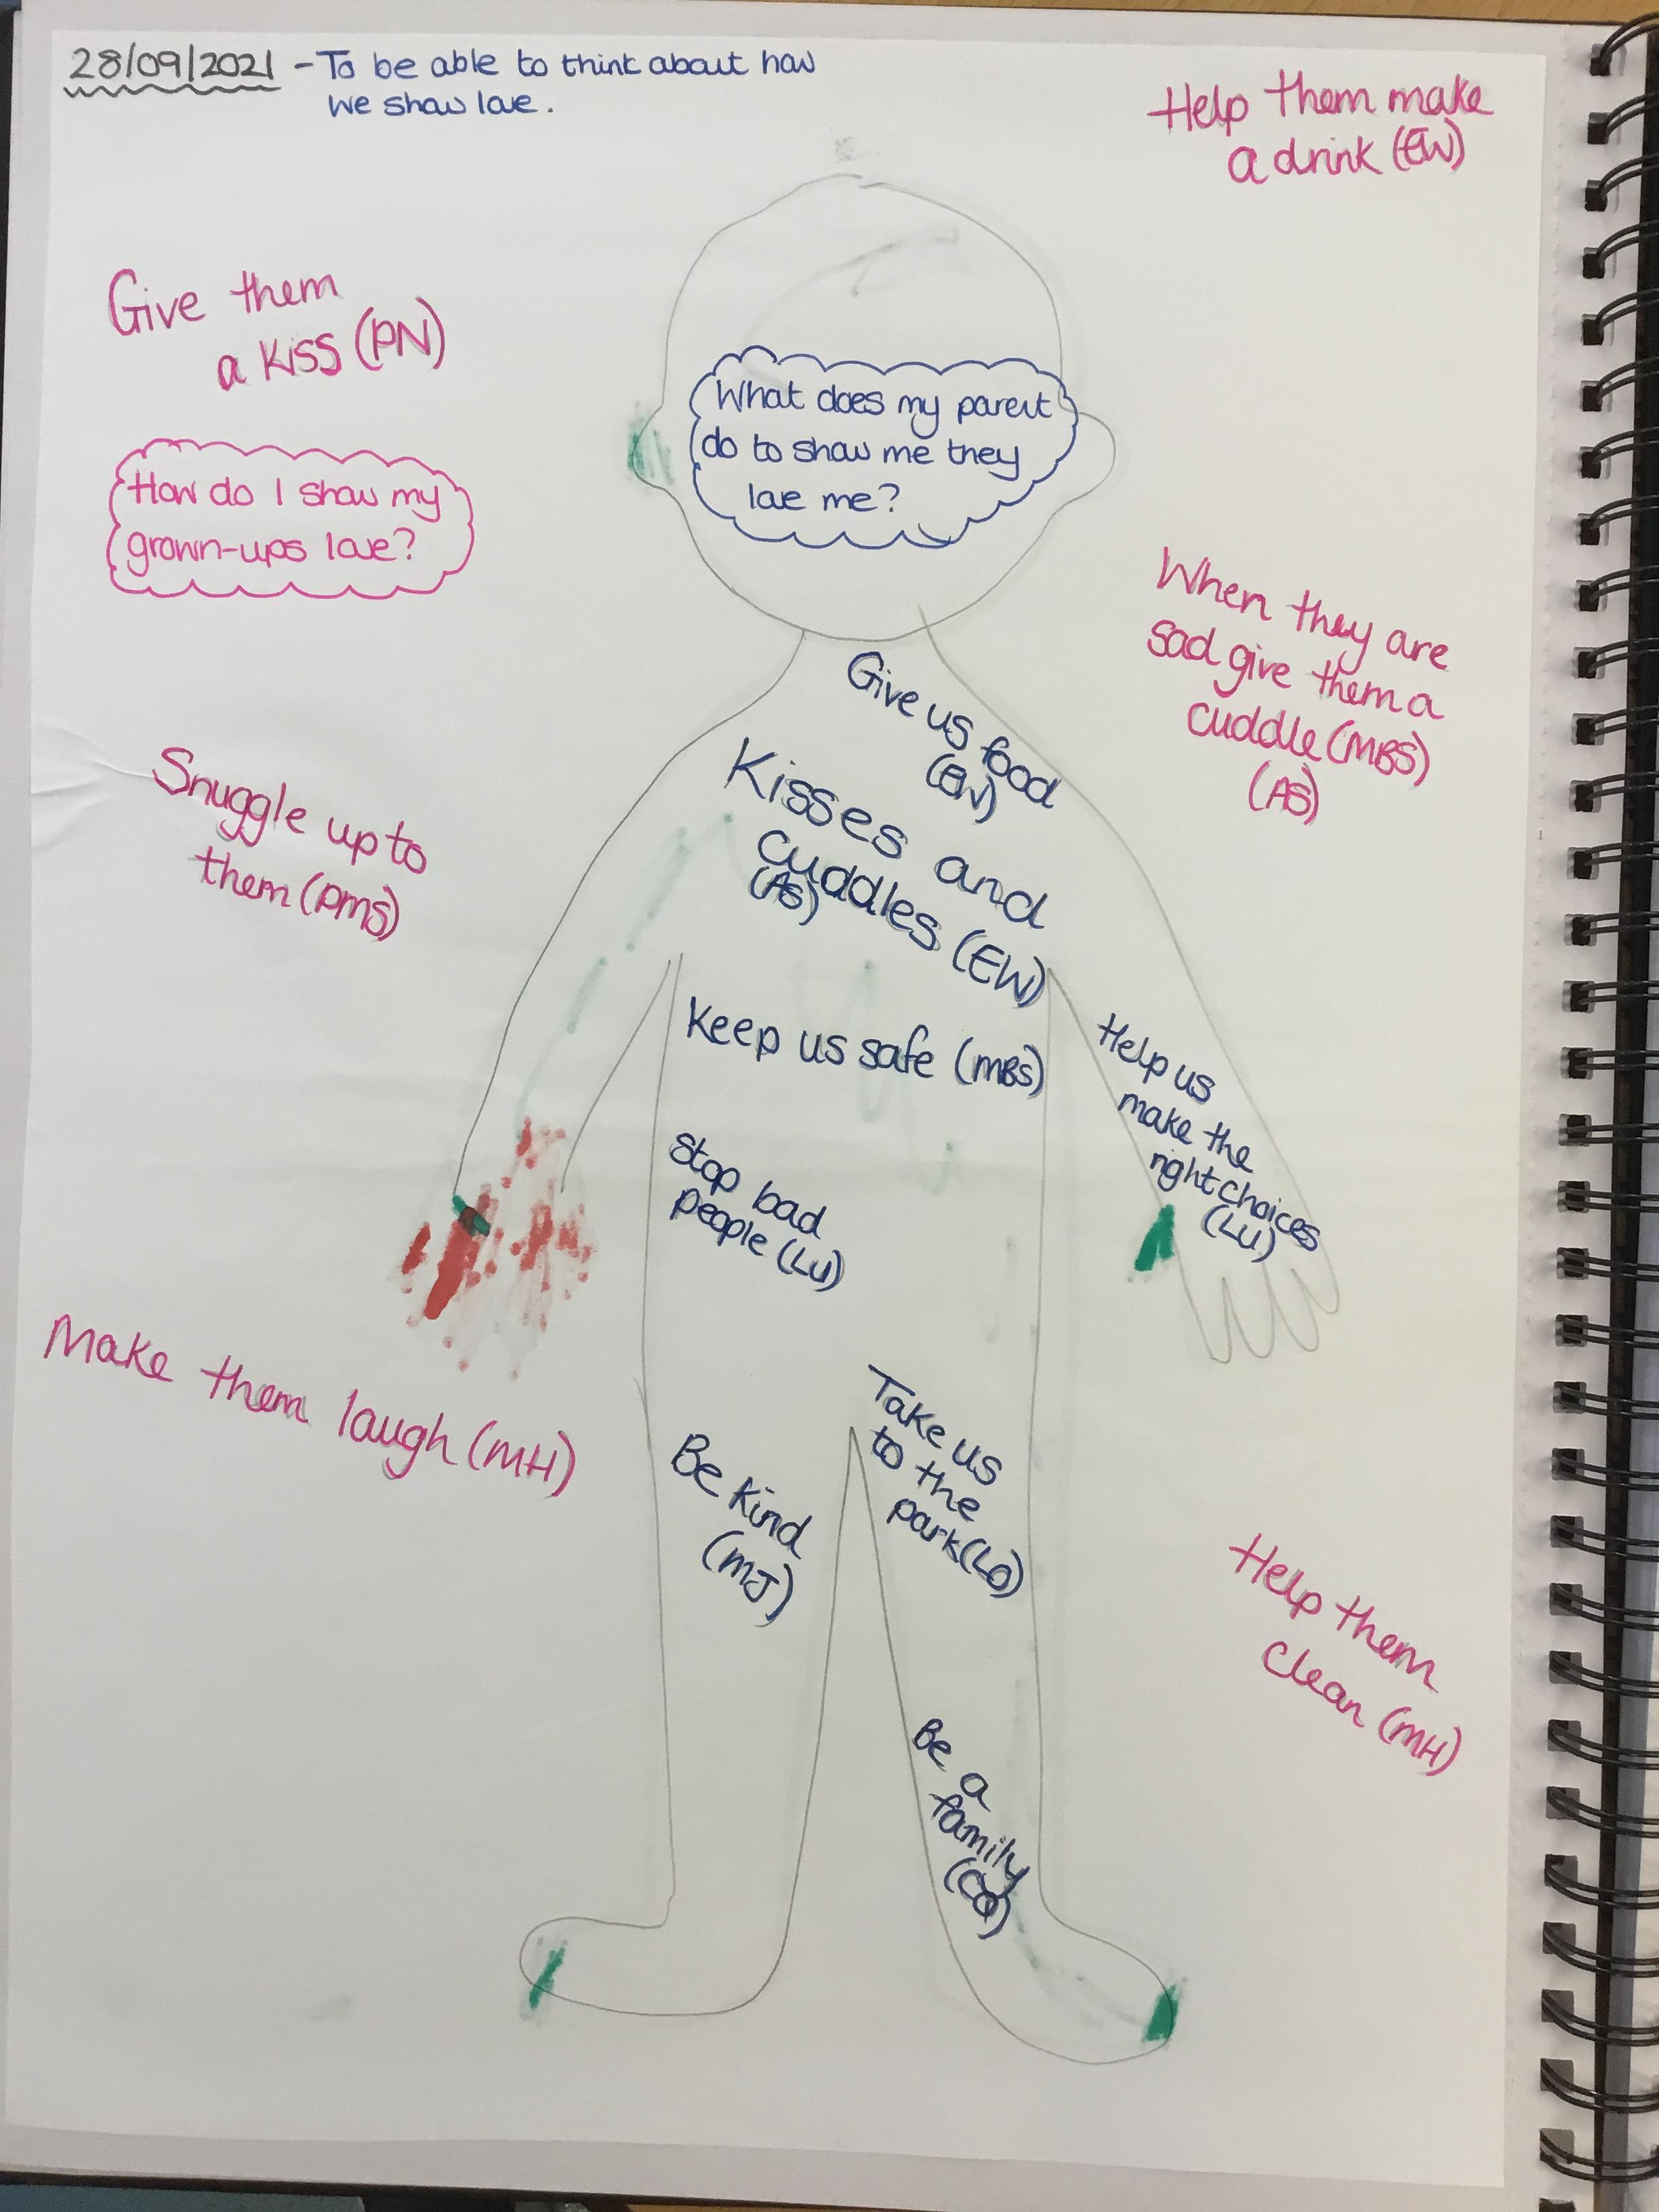 28/09/2021 - To be able to think about how
we show love.
Help them make
a drink (EW)
Give them
a kiss (PN)
What does my parent
do to show me they
love me?
How do I show my
grown-ups love?
When they are
sad give them a
cuddle (MBS)
(AS)
Give us food
(EW)
Kisses and
cuddles (EW)
(AS)
Snuggle up to
them (PMS)
Keep us safe (MBS)
Help us
make the
right choices
(LU)
Stop bad
people (LU)
Make them laugh (MH)
Take us
to the
park (LO)
Be kind
(MJ)
Help them
clean (MH)
Be a
family